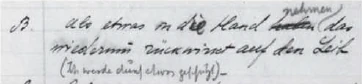 B. Als etwas in die Hand nehmen das
wiederum zurückwirkt auf den Leib
(Ich werde durch etwas geführt)_